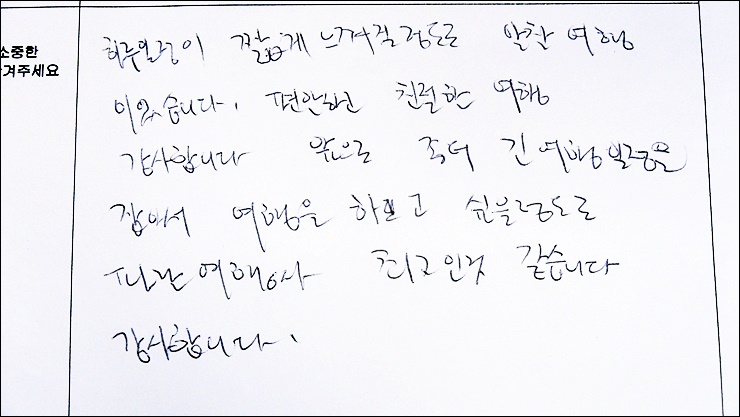 소중한
겨주세요
하루일정이 짧게 느껴질정도로 알찬 여행
이었습니다. 편안하고 친절한 여행
감사합니다 앞으로 좀더 긴 여행일정을
잡아서 여행을 하고 싶을정도로
여행사 최고인것 같습니다
감사합니다.